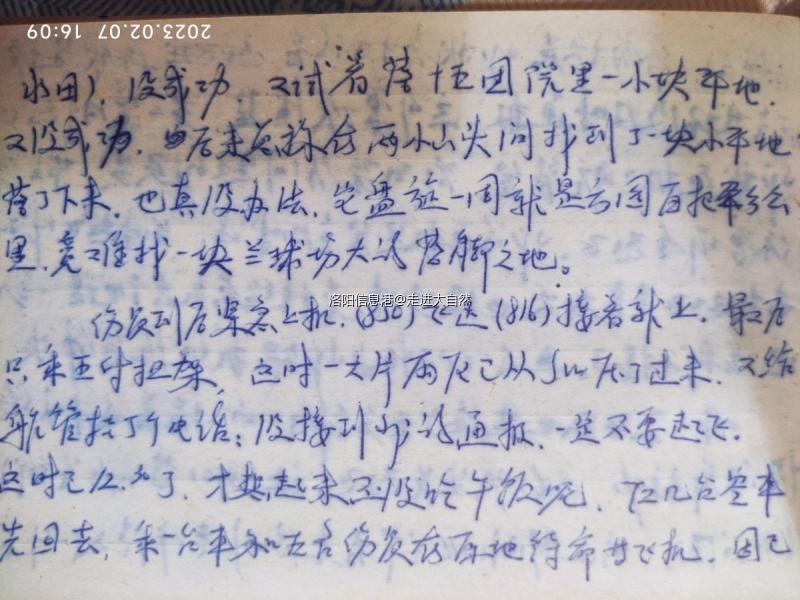 2023.02.07 16:09
水田），没成功，又试着落十团院里一小块平地，
又没成功，后来总算在两小山头间找到了一块小平地
落了下来，也真没办法，它盘旋一周就是方圆百把平方公
里，竟难找一块兰球场大的落脚之地。
洛阳信息港@走进大自然
伤员到后紧急上机，(850)走送(816)接着就上，最后
只乘五付担架，这时一大片雨已从压了过来，又给
航管挂了个电话：没接到我的通报，一定不要起飞。
这时已了，才想起来还没吃午饭呢，几台空车
先回去，来一台车和五名伤员在原地待命等飞机，因已